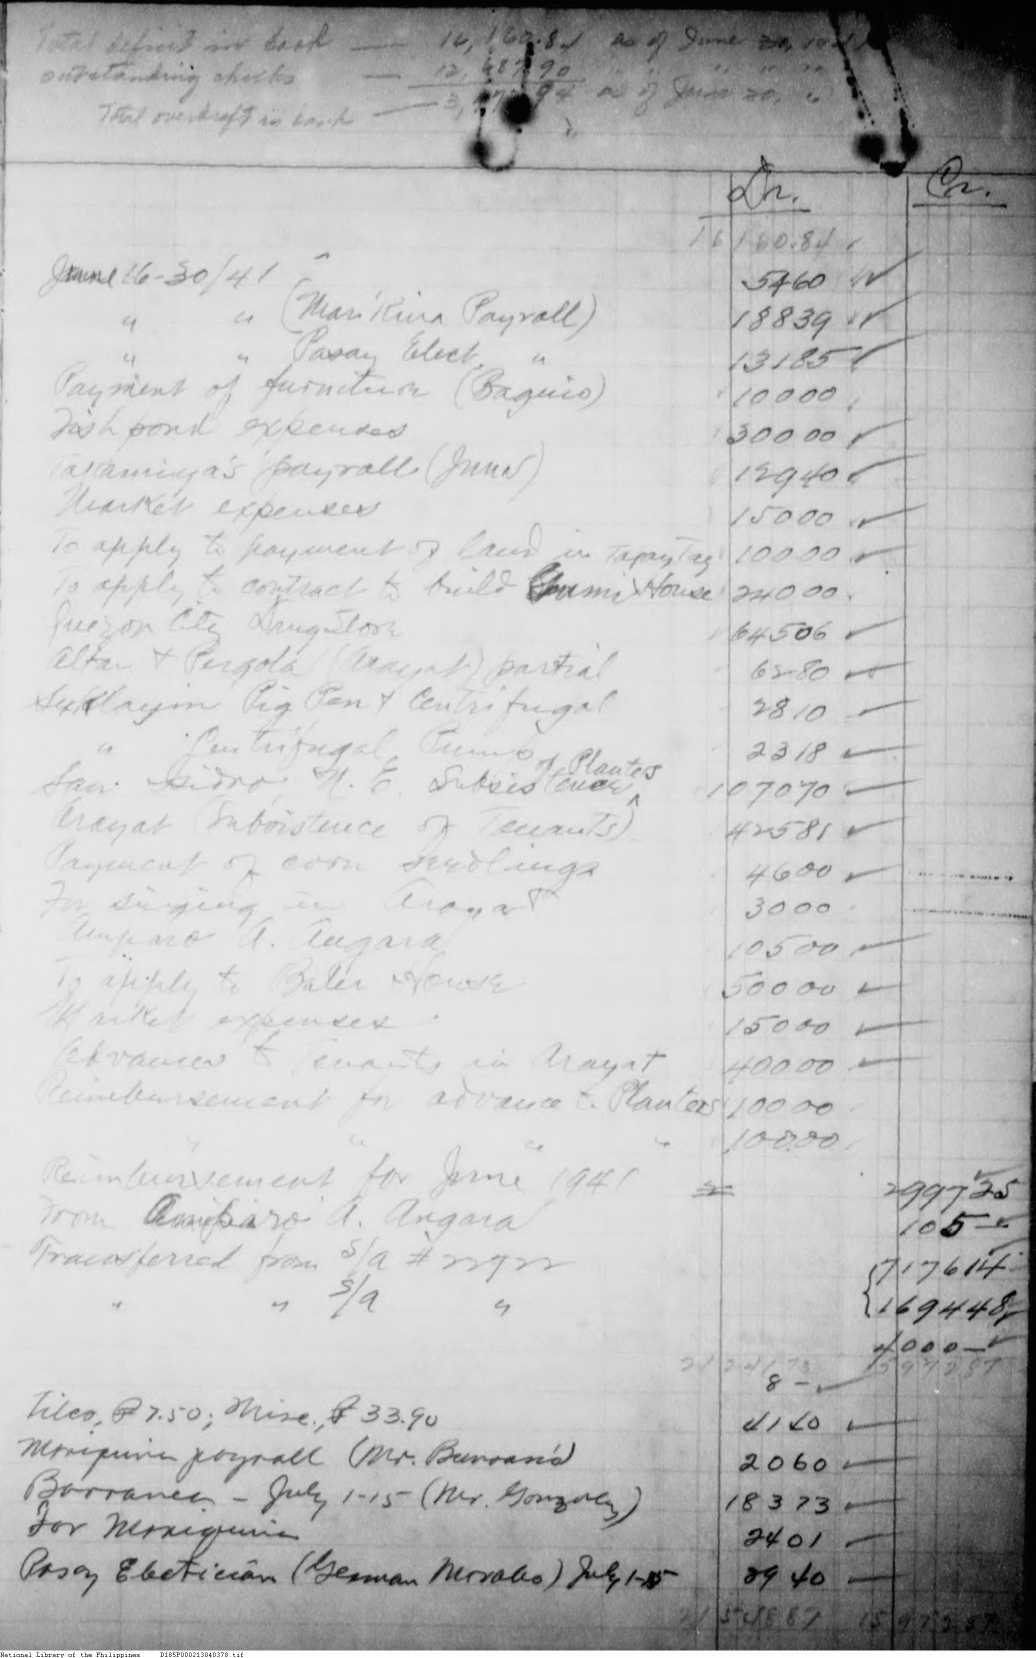 Total deficit in bank — 16,160.84 as of June 30, 1941
outstanding checks — 12, 87.90 " " " " "
Total overdraft in bank — 3, 7 .94 as of June 30, "
Dr. Cr.
16160.84
June 16-30/41 " 5460
" " (Marikina Payroll) 18839
" " Pasay Elect. " 13185
Payment of furniture (Baguio) 10000
Fishpond expenses 30000
Takamiya's payroll (June) 12940
Market expenses 15000
To apply to payment of land in Tagaytay 10000
To apply to contract to build House 24000
Quezon City Drugstore 64506
Altar & Pergola (Arayat) partial 6280
Pig Pen & Centrifugal 2810
" Centrifugal Pump 2318
San Isidro, N. E. Subsistence of Planters 107070
Arayat (Subsistence of Tenants) 42581
Payment of corn seedlings 4600
For singing in Arayat 3000
Amparo A. Angara 10500
To apply to Baler House 50000
Market expenses 15000
Advances to Tenants in Arayat 40000
Reimbursement for advance to Planters 10000
" " " " 10000
Reimbursement for June 1941 299725
From Amparo A. Angara 105 —
Transferred from S/a # 717614
" " S/a " 169448
4000 —
8 — 1597287
Tilco, ₱7.50; Misc., ₱33.90 4140
Mariquina payroll (Mr. ) 2060
Barranca — July 1-15 (Mr. Gonzales) 18373
For Mariquina 2401
Pasay Electrician (German Morales) July 1-15 3940
1597287